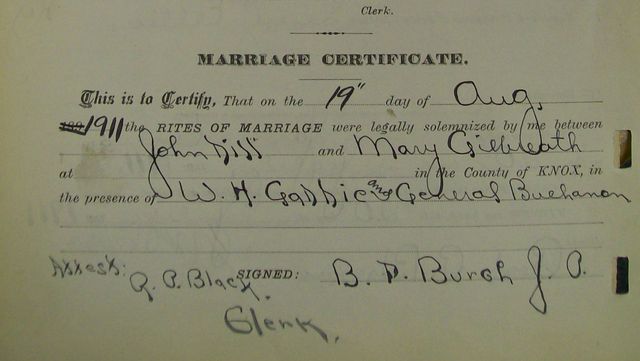 Clerk.
MARRIAGE CERTIFICATE.
This is to Certify, That on the 19" day of Aug.
1911 the RITES OF MARRIAGE were legally solemnized by me between
John and Mary Gilbreath
at in the County of KNOX, in
the presence of W. H. and General Buchanan
Attest: SIGNED: B. P. Burch J. P.
R. A. Black.
Clerk.